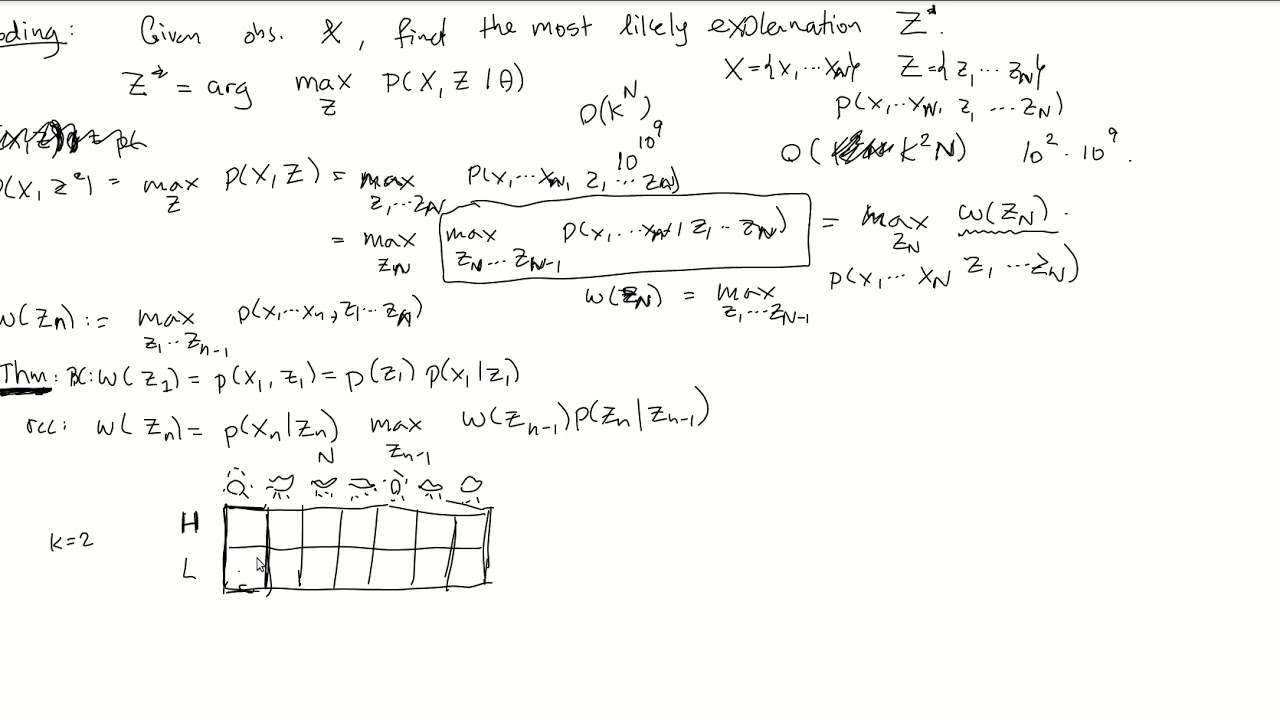 oding: Given obs. X, find the most likely explanation Z*.
Z* = arg max_Z P(X, Z | θ)
X = {x₁, ... x_N} Z = {z₁ ... z_N}
P(x₁ ... x_N, z₁ ... z_N)
O(k^N)
10^10^9
O( k²N) 10² · 10⁹.
p(X, Z*) = max_Z P(X, Z) = max_{z₁ ... z_N} P(x₁, ... x_N, z₁ ... z_N)
= max_{z_N} max_{z_N ... z_{N-1}} P(x₁, ... x_N, z₁ .. z_N) = max_{z_N} ω(z_N).
ω(z_N) = max_{z₁, ... z_{N-1}} P(x₁ ... x_N z₁, ... z_N)
ω(z_n) := max_{z₁ .. z_{n-1}} p(x₁ ... x_n, z₁ ... z_n)
Thm: BC: ω(z₁) = p(x₁, z₁) = p(z₁) p(x₁|z₁)
rec: ω(z_n) = p(x_n|z_n) max_{z_{n-1}} ω(z_{n-1}) p(z_n|z_{n-1})
N
H
k=2
L